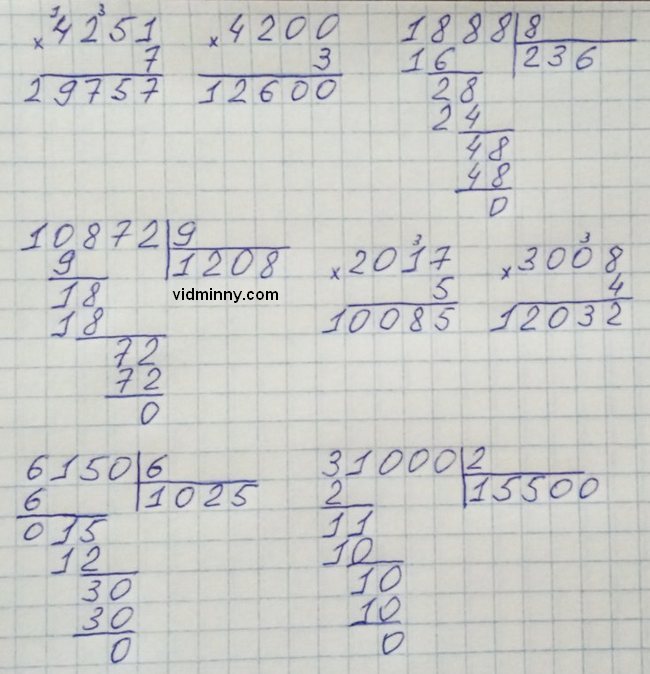 1 3
× 4251
7
29757
× 4200
3
12600
1888 | 8
16
236
28
24
48
48
0
10872 | 9
9
1208
18
18
72
72
0
vidminny.com
3
× 2017
5
10085
3
× 3008
4
12032
6150 | 6
6
1025
015
12
30
30
0
31000 | 2
2
15500
11
10
10
10
0